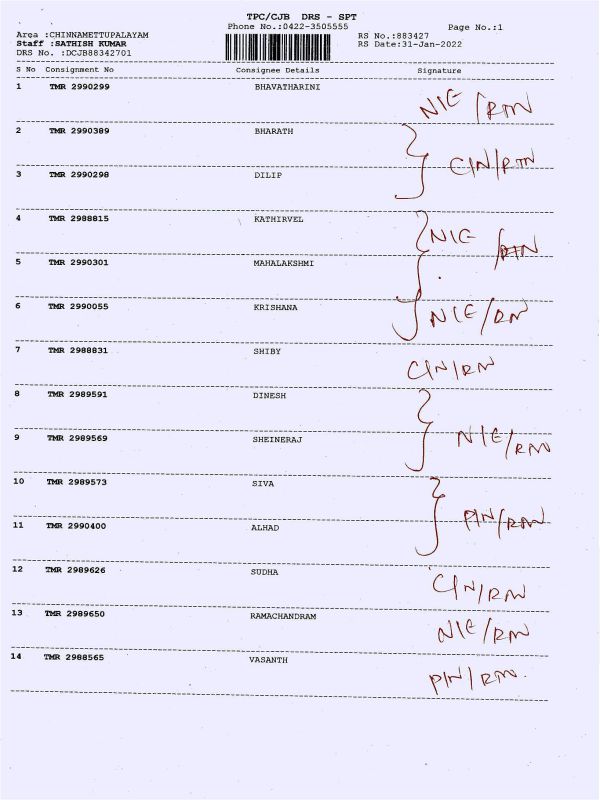 TPC/CJB DRS - SPT
Phone No.:0422-3505555
Page No.:1
Area :CHINNAMETTUPALAYAM
RS No.:883427
Staff :SATHISH KUMAR
RS Date:31-Jan-2022
DRS No. :DCJB88342701
S No Consignment No Consignee Details Signature
1 TMR 2990299 BHAVATHARINI
NIE /RTN
2 TMR 2990389 BHARATH
CIN/RTN
3 TMR 2990298 DILIP
4 TMR 2988815 KATHIRVEL
NIE /RTN
5 TMR 2990301 MAHALAKSHMI
6 TMR 2990055 KRISHANA
NIE/RN
7 TMR 2988831 SHIBY
CIN/RN
8 TMR 2989591 DINESH
9 TMR 2989569 SHEINERAJ
NIE/RM
10 TMR 2989573 SIVA
11 TMR 2990400 ALHAD
PIN/RM
12 TMR 2989626 SUDHA
CIN/RM
13 TMR 2989650 RAMACHANDRAM
NIE/RM
14 TMR 2988565 VASANTH
PIN/RM